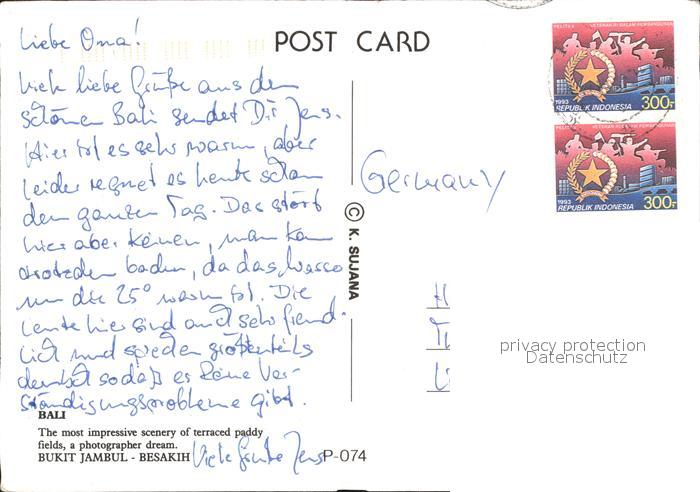 Liebe Oma!
POST CARD
Viele liebe Grüße aus dem
schönen Bali sendet Dir Jens.
Hier ist es sehr warm, aber
leider regnet es heute schon
den ganzen Tag. Das stört
hier aber keinen, man kann
trotzdem baden, da das Wasser
um die 25° warm ist. Die
Leute hier sind auch sehr freund-
lich und sprechen größtenteils
deutsch sodaß es keine Ver-
ständigungsprobleme gibt.
Viele Grüße Jens
BALI
The most impressive scenery of terraced paddy
fields, a photographer dream.
BUKIT JAMBUL - BESAKIH
P-074
© K. SUJANA
Germany
PELITA V VETERAN RI DALAM PEMBANGUNAN
1993
REPUBLIK INDONESIA 300,-
PELITA V VETERAN RI DALAM PEMBANGUNAN
1993
REPUBLIK INDONESIA 300,-
privacy protection
Datenschutz